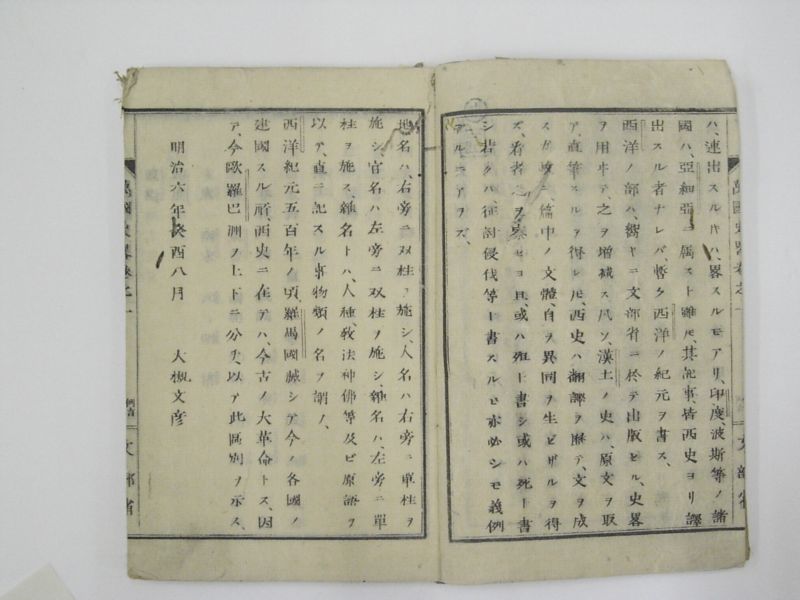 ハ、連出スルキハ、畧スルモアリ、印度、波斯等ノ諸
國ハ、亞細亞ニ属スト雖𪜈、其記事、皆西史ヨリ譯
出スル者ナレバ、暫ク西洋ノ紀元ヲ書ス、
西洋ノ部ハ、嚮キニ文部省ニ於テ出版セル、史畧
ヲ用ヰテ、之ヲ増減ス凡ソ、漢土ノ史ハ、原文ヲ取
ヲ、直筆スルヲ得レ𪜈、西史ハ翻譯ヲ歴テ、文ヲ成
スガ故ニ、篇中ノ文體、自ラ異同ヲ生ゼザルヲ得
ズ、看者之ヲ察セヨ且、或ハ殂ト書シ或ハ死ト書
シ若クハ、征討侵伐等ト書スルモ亦必シモ義例
アルニアラズ、
地名ハ、右旁ニ双柱ヲ施シ、人名ハ右旁ニ單柱ヲ
施シ、官名ハ左旁ニ双柱ヲ施シ、雜名ハ、左旁ニ單
柱ヲ施ス、雜名トハ、人種、敎法神佛等及ビ原語ヲ
以テ、直ニ記スル事物類ノ名ヲ謂フ、
西洋紀元五百年ノ頃、羅馬國滅シテ今ノ各國ノ
建國スル所、西史ニ在テハ、今古ノ大革命トス、因
テ、今歐羅巴洲ヲ上下ニ分チ、以テ此區別ヲ示ス、
明治六年癸酉八月 大槻文彦
萬國史畧卷之一
文部省